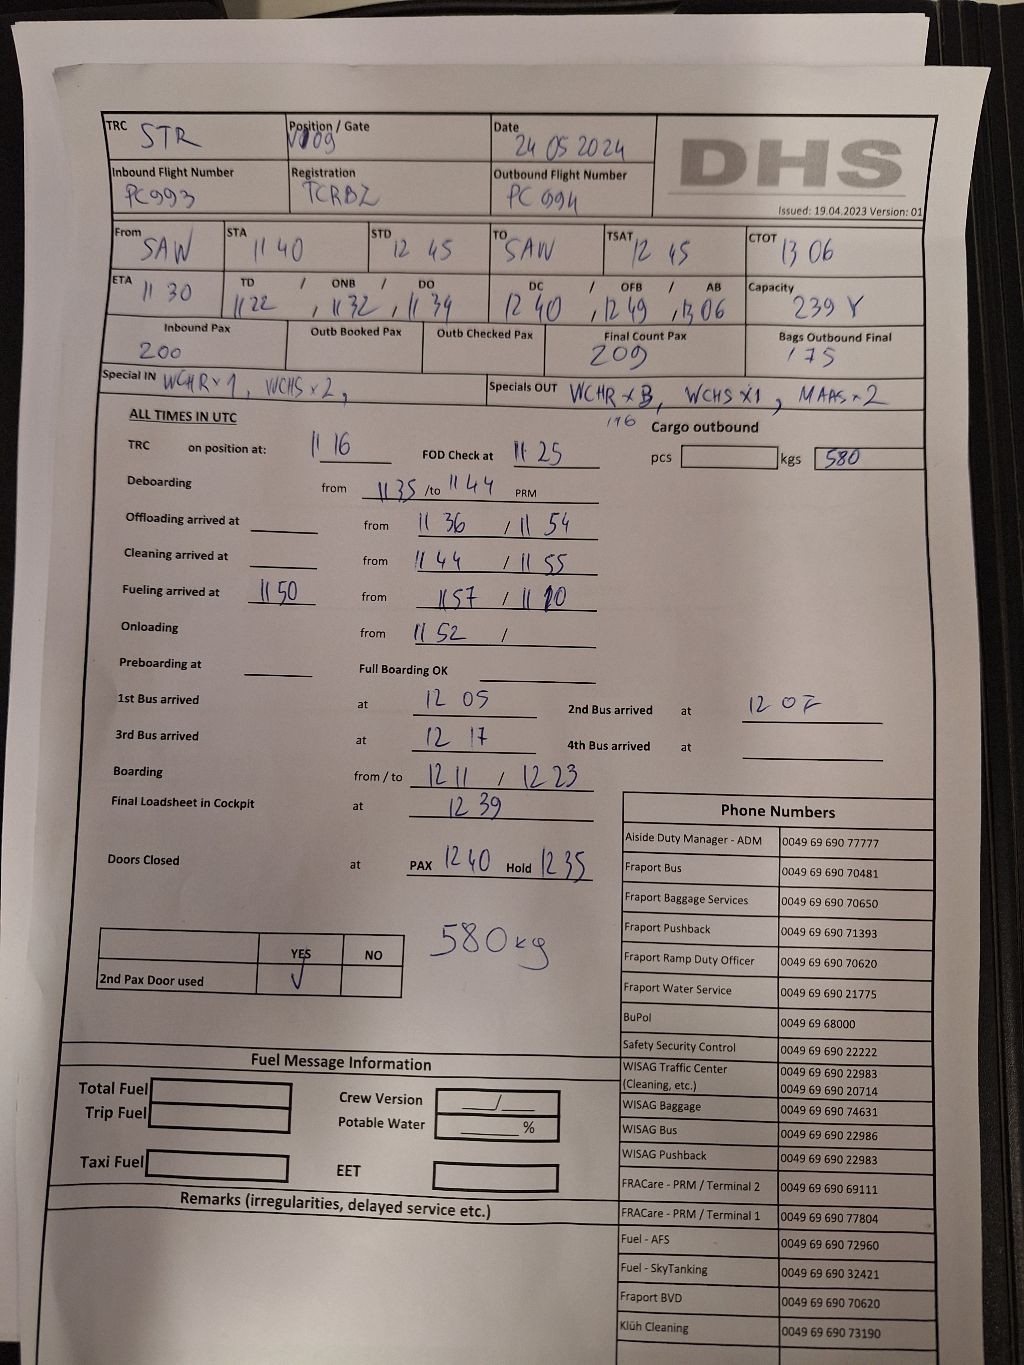 TRC STR Position / Gate V109 Date 24 05 2024 DHS
Inbound Flight Number PC993 Registration TCRBZ Outbound Flight Number PC 994
Issued: 19.04.2023 Version: 01
From SAW STA 11 40 STD 12 45 TO SAW TSAT 12 45 CTOT 13 06
ETA 11 30 TD / ONB / DO 1122 , 1132 , 11 34 DC / OFB / AB 12 40 , 12 49 , 13 06 Capacity 239 Y
Inbound Pax 200 Outb Booked Pax Outb Checked Pax Final Count Pax 209 Bags Outbound Final 175
Special IN WCHR x 1, WCHS x 2, Specials OUT WCHR x B, WCHS x1, MAAS x 2
ALL TIMES IN UTC 196 Cargo outbound
TRC on position at: 11 16 FOD Check at 11 25 pcs kgs 580
Deboarding from 1135 /to 1144 PRM
Offloading arrived at from 11 36 / 11 54
Cleaning arrived at from 11 44 / 11 55
Fueling arrived at 11 50 from 1157 / 11
Onloading from 11 52 /
Preboarding at Full Boarding OK
1st Bus arrived at 12 05 2nd Bus arrived at 12 07
3rd Bus arrived at 12 17 4th Bus arrived at
Boarding from / to 12 11 / 12 23
Final Loadsheet in Cockpit at 12 39
Doors Closed at PAX 12 40 Hold 12 35
580 kg
YES NO
2nd Pax Door used ✓
Phone Numbers
Aiside Duty Manager - ADM 0049 69 690 77777
Fraport Bus 0049 69 690 70481
Fraport Baggage Services 0049 69 690 70650
Fraport Pushback 0049 69 690 71393
Fraport Ramp Duty Officer 0049 69 690 70620
Fraport Water Service 0049 69 690 21775
BuPol 0049 69 68000
Safety Security Control 0049 69 690 22222
WISAG Traffic Center 0049 69 690 22983
(Cleaning, etc.) 0049 69 690 20714
WISAG Baggage 0049 69 690 74631
WISAG Bus 0049 69 690 22986
WISAG Pushback 0049 69 690 22983
FRACare - PRM / Terminal 2 0049 69 690 69111
FRACare - PRM / Terminal 1 0049 69 690 77804
Fuel - AFS 0049 69 690 72960
Fuel - SkyTanking 0049 69 690 32421
Fraport BVD 0049 69 690 70620
Klüh Cleaning 0049 69 690 73190
Fuel Message Information
Total Fuel Crew Version ___/___
Trip Fuel Potable Water ______ %
Taxi Fuel EET
Remarks (irregularities, delayed service etc.)